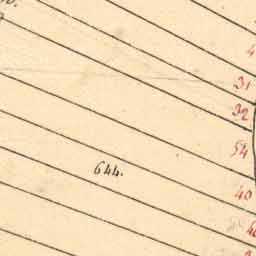 4
31
32
54
644.
40